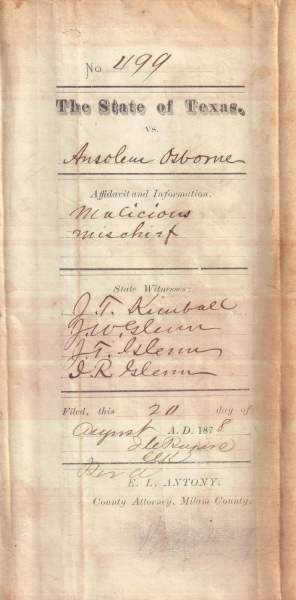 No 499
The State of Texas.
vs.
Ansolem Osborne
Affidavit and Information.
Malicious
mischief
State Witnesses:
J. T. Kimball
J. W. Glenn
J. T. Glenn
I. R. Glenn
Filed, this 20 day of
August A. D. 1878
Clk
E. L. ANTONY.
County Attorney, Milam County.